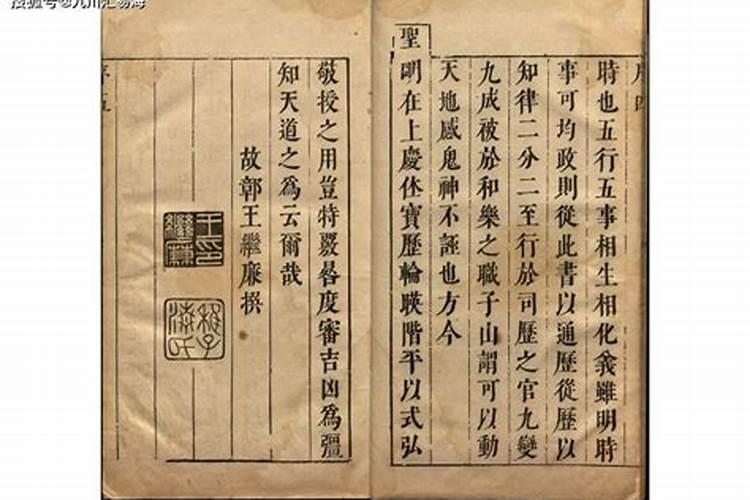 時也五行五事相生相化義雖明時
事可均政則從此書以通歷從歷以
知律二分二至行於司歷之官九變
九成被於和樂之職子山謂可以動
天地感鬼神不誣也方今
聖明在上慶休寶歷輪暎階平以式弘
敬授之用豈特覈晷度審吉凶為彊
知天道之為云爾哉
故鄣王繼廉撰
王印繼廉